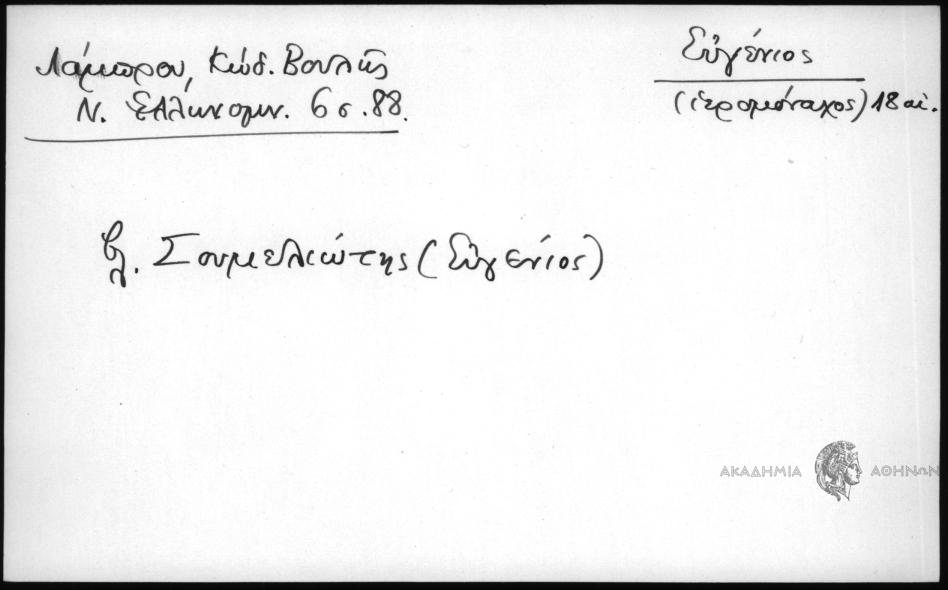 Λάμπρου, Κώδ. Βουλῆς
Ν. Ἑλληνομν. 6 σ. 88.
Εὐγένιος
(ἱερομόναχος) 18 αἰ.
βλ. Σουμελιώτης (Εὐγένιος)
ΑΚΑΔΗΜΙΑ ΑΘΗΝΩΝ